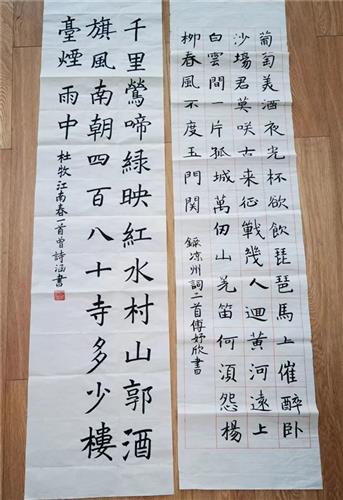 葡萄美酒夜光杯欲飲琵琶馬上催醉卧
沙場君莫咲古来征戰幾人迴黃河遠上
白雲間一片孤城萬仞山羌笛何須怨楊
柳春風不度玉門關
錄凉州詞二首傅妤欣書
千里鶯啼綠映紅水村山郭酒
旗風南朝四百八十寺多少樓
臺煙雨中
杜牧江南春一首曾詩涵書